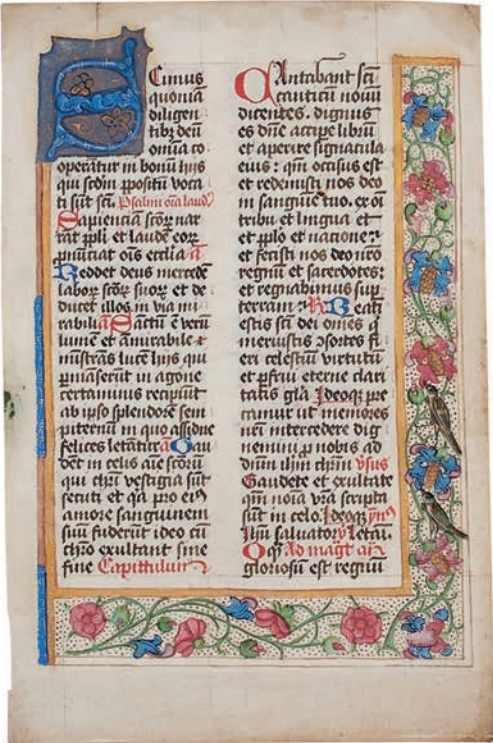 Scimus
quoniā
diligen
tibꝫ deū
omīa co
operātur in bonū hijs
qui scdm ꝓpositū voca
ti sūt scī. Psalmi oīa laudꝰ
Sapienciā scōꝝ nar
rāt ppli et laudē eoꝝ
pnūciat oīs ecclīa a
Reddet deus mercedē
laboꝝ scōꝝ suoꝝ et de
ducet illos in via mi
rabili a Sāctū ē verū
lumē et amirabile ⁊
mīstrās lucē hijs qui
pmāserūt in agone
certaminis recipiūt
ab ipso splendorē sem
piternū in quo assidue
felices letātur a Gau
dēt in celis aīe scōrū
qui chrī vestigia sūt
secuti et qꝛ pro eiꝰ
amore sanguinem
suū fuderūt ideo cū
chrō exultant sine
fine Capittulum
Antabant scī
canticū nouū
dicentes. dignus
es dn̄e accipe librū
et aperire signacula
eius: qm̄ occisus est
et redemisti nos deo
in sanguīe tuo. ex oī
tribu et lingua et
et pplo et nacione
et fecisti nos deo nrō
regnū et sacerdotes:
et regnabimus sup
terram R Beati
estis scī dei omēs q
meruistis ꝯsortes fi
eri celestiū virtutū
et pfrui eterne clari
tatis glā Ideoqꝫ pre
camur ut memores
nrī intercedere dig
nemini p nobis ad
dnm ihm chrm vsus
Gaudete et exultate
qm̄ noīa vrā scripta
sūt in celo. Ideoqꝫ ynꝰ
Ihū saluatoꝝ letāi.
Oqꝫ Ad magt añ
gloriosū est regnū